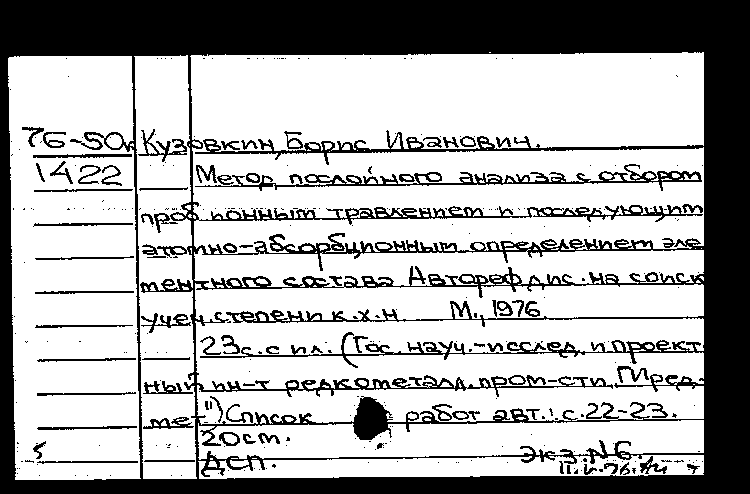 76-50к Кузовкин, Борис Иванович.
1422 Метод послойного анализа с отбором
проб ионным травлением и последующим
атомно-абсорбционным определением эле
ментного состава Автореф дис. на соиск
учен. степени к.х.н М., 1976
23с. с ил. (Гос. науч.-исслед. и проект
ный ин-т редкометалл. пром-сти "Гиред-
мет") Список работ авт.: с. 22-23.
20 ст.
5 ДСП. Экз. N6.